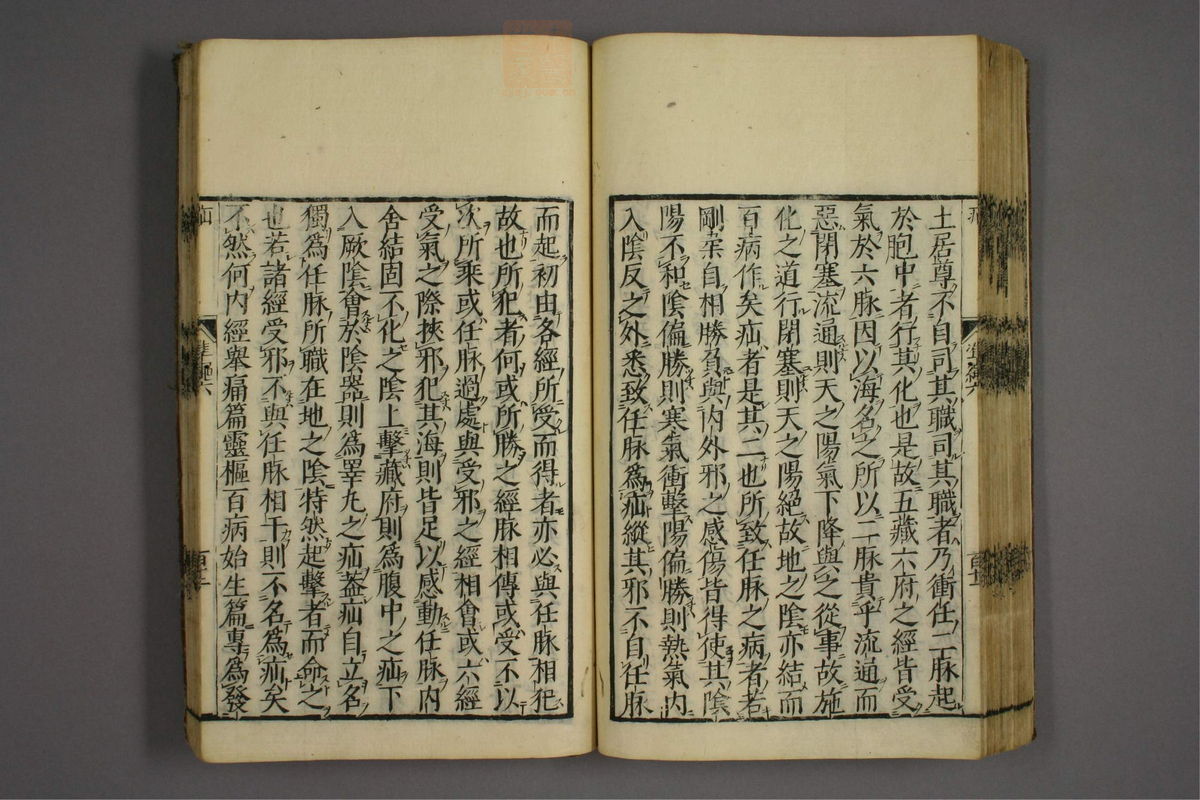 土居尊不自司其職司其職者乃衝任二脉起
於胞中者行其化也是故五藏六府之經皆受
氣於六脉因以海名之所以二脉貴乎流通而
惡閉塞流通則天之陽氣下降與之從事故施
化之道行閉塞則天之陽絕故地之陰亦結而
百病作矣疝者是其二也所致任脉之病者若
剛柔自相勝負與内外邪之感傷皆得使其陰
陽不和陰偏勝則寒氣衝擊陽偏勝則熱氣内
入陰反之外悉致任脉爲疝縱其邪不自任脉
而起初由各經所受而得者亦必與任脉相犯
故也所犯者何或所勝之經脉相傳或受不以
次所乘或任脉過處與受邪之經相會或六經
受氣之際挾邪犯其海則皆足以感動任脉内
舍結固不化之陰上擊藏府則爲腹中之疝下
入厥陰會於陰器則爲睪丸之疝葢疝自立名
獨爲任脉所職在地之陰特然起擊者而命之
也若諸經受邪不與任脉相干則不名爲疝矣
不然何内經舉痛篇靈樞百病始生篇專爲發
疝